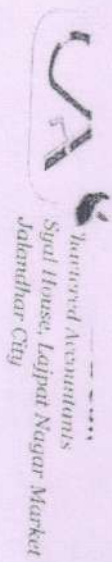 CA
Chartered Accountants
Syal House, Lajpat Nagar Market
Jalandhar City